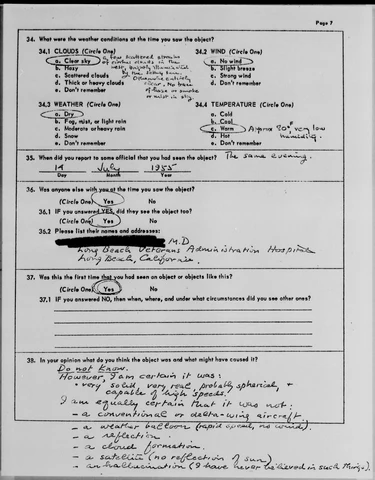 Page 7
34. What were the weather conditions at the time you saw the object?
34.1 CLOUDS (Circle One)
a. Clear sky
b. Hazy
c. Scattered clouds
d. Thick or heavy clouds
e. Don't remember
a few scattered
of cirrus clouds in the
west,
by the setting sun.
Otherwise entirely
clear. No trace
of haze or smoke
or mist in sky.
34.2 WIND (Circle One)
a. No wind
b. Slight breeze
c. Strong wind
d. Don't remember
34.3 WEATHER (Circle One)
a. Dry
b. Fog, mist, or light rain
c. Moderate or heavy rain
d. Snow
e. Don't remember
34.4 TEMPERATURE (Circle One)
a. Cold
b. Cool
c. Warm
d. Hot
e. Don't remember
Approx 80°F very low
humidity.
35. When did you report to some official that you had seen the object? The same evening.
14 July 1955
Day Month Year
36. Was anyone else with you at the time you saw the object?
(Circle One) Yes No
36.1 IF you answered YES, did they see the object too?
(Circle One) Yes No
36.2 Please list their names and addresses:
M.D
Long Beach Veterans Administration Hospital
Long Beach, California.
37. Was this the first time that you had seen an object or objects like this?
(Circle One) Yes No
37.1 IF you answered NO, then when, where, and under what circumstances did you see other ones?
38. In your opinion what do you think the object was and what might have caused it?
Do not know.
However, I am certain it was:
- very solid, very real, probably spherical, +
capable of high speeds.
I am equally certain that it was not:
- a conventional or delta-wing aircraft
- a weather balloon (rapid speed, no wind).
- a reflection.
- a cloud formation.
- a satellite (no reflection of sun)
- an hallucination (I have never believed in such things).